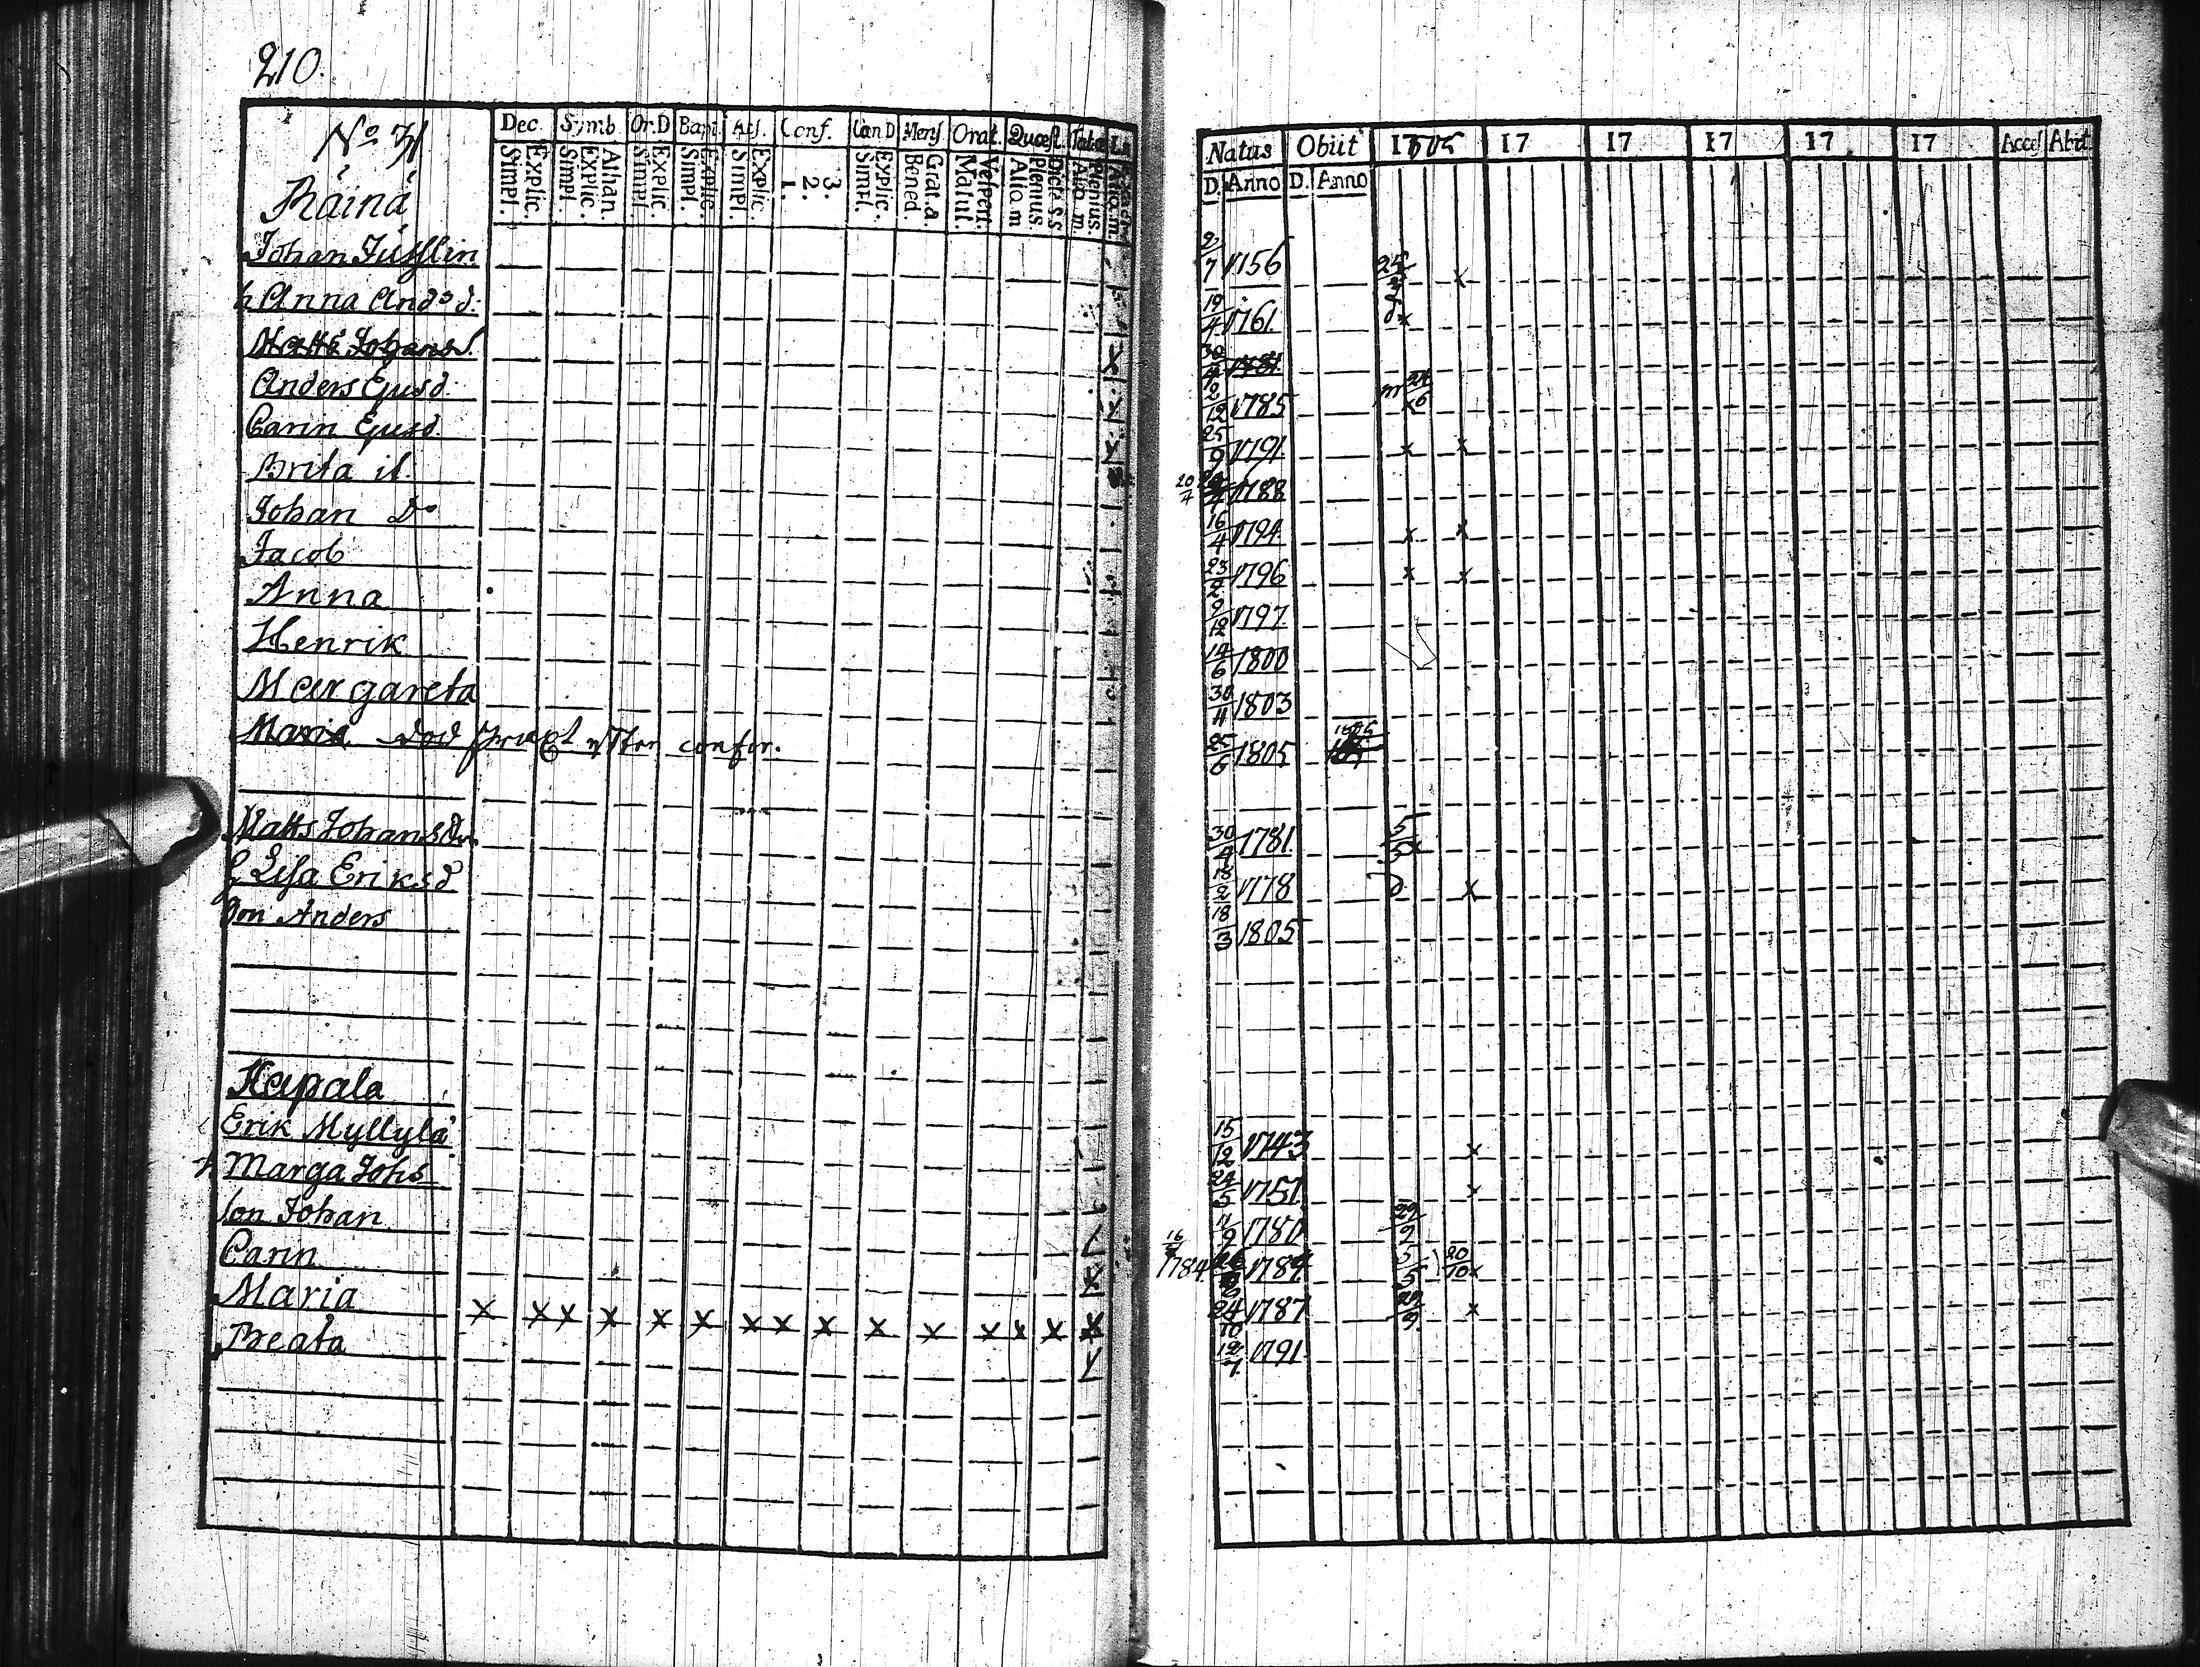 210.
No 31
Räinä
Dec. Symb. Or.D Bapt. Abs. Conf. Can D Mens Orat. Quæst.
Simpl. Explic. Simpl. Explic. Athan. Simpl. Explic. Simpl. Explic. Simpl. Explic. 1. 2. 3. Simpl. Explic. Bened. Grat. a. Matut. Vespert. Alio m Plenius. Dicta s.s Alio m Plenius Alio. m.
Natus Obiit 1805 17 17 17 17 17 Access Abit
D. Anno D. Anno
Johan 2/7 1756 x
h Anna And:s d: 19/4 1761 x
Matts Johans 30/4 1781 x
Anders Ejusd. 2/12 1785
Carin Ejusd. 25/9 1791 x x
Brita it. 20/4 1788
Johan Do 16/4 1794 x x
Jacob 23/2 1796 x x
Anna 9/12 1797
Henrik 14/6 1800
Margareta 30/4 1803
Maria död confir. 25/6 1805
Matts Johans 30/4 1781 5/5 x
h Lisa Eriksd 18/2 1778 D x
Son Anders 18/3 1805
Kapala
Erik Myllylä 15/12 1743 x
h Marga Johs 24/5 1751 x
Son Johan 11/9 1780 29/9
Carin 1784 1784 5/5 20/10 x
Maria x x x x x x x x x x x x x x x x 24/10 1787 29/9 x
Beata 12/7 1791